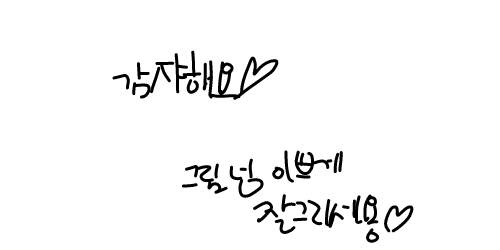 감쟈해요♡
그림 넘 이쁘게
잘그리세용♡